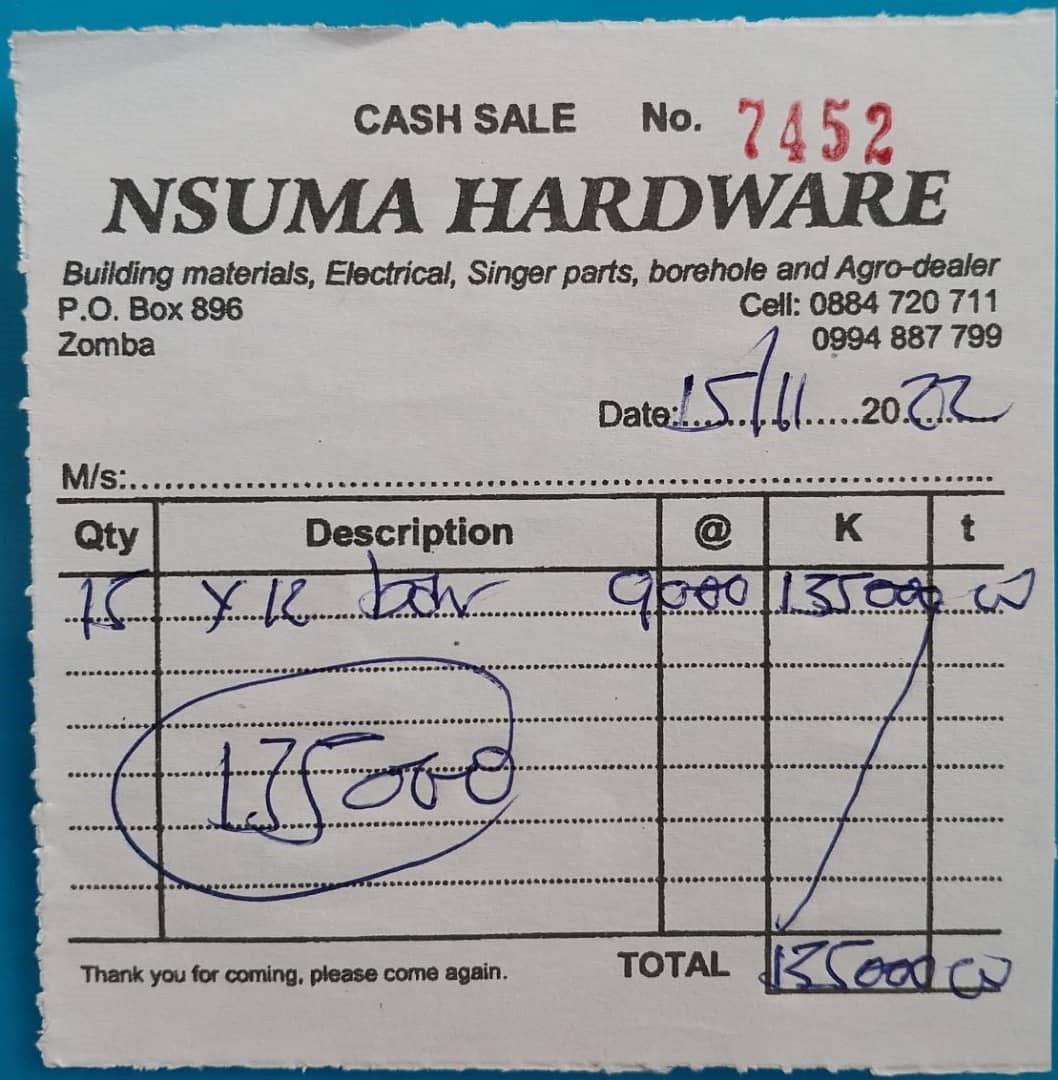 CASH SALE No. 7452
NSUMA HARDWARE
Building materials, Electrical, Singer parts, borehole and Agro-dealer
P.O. Box 896 Cell: 0884 720 711
Zomba 0994 887 799
Date:15/11.....2022
M/s:
Qty Description @ K t
15 Y 12 9000 135000
135000
Thank you for coming, please come again. TOTAL 135000